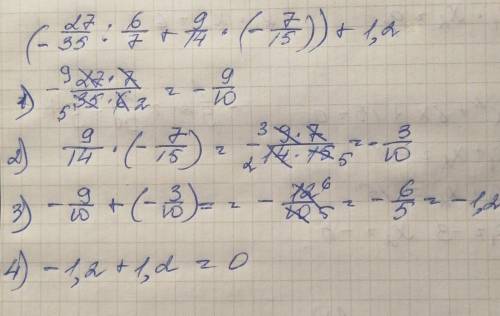 (-27/35 : 6/7 + 9/14 · (-7/15)) + 1,2
1) - 9 27·7 / 5 35·6 2 = - 9/10
2) 9/14 · (-7/15) = - 3 9·7 / 2 14·15 5 = - 3/10
3) - 9/10 + (-3/10) = = - 12 6 / 10 5 = - 6/5 = - 1,2
4) - 1,2 + 1,2 = 0